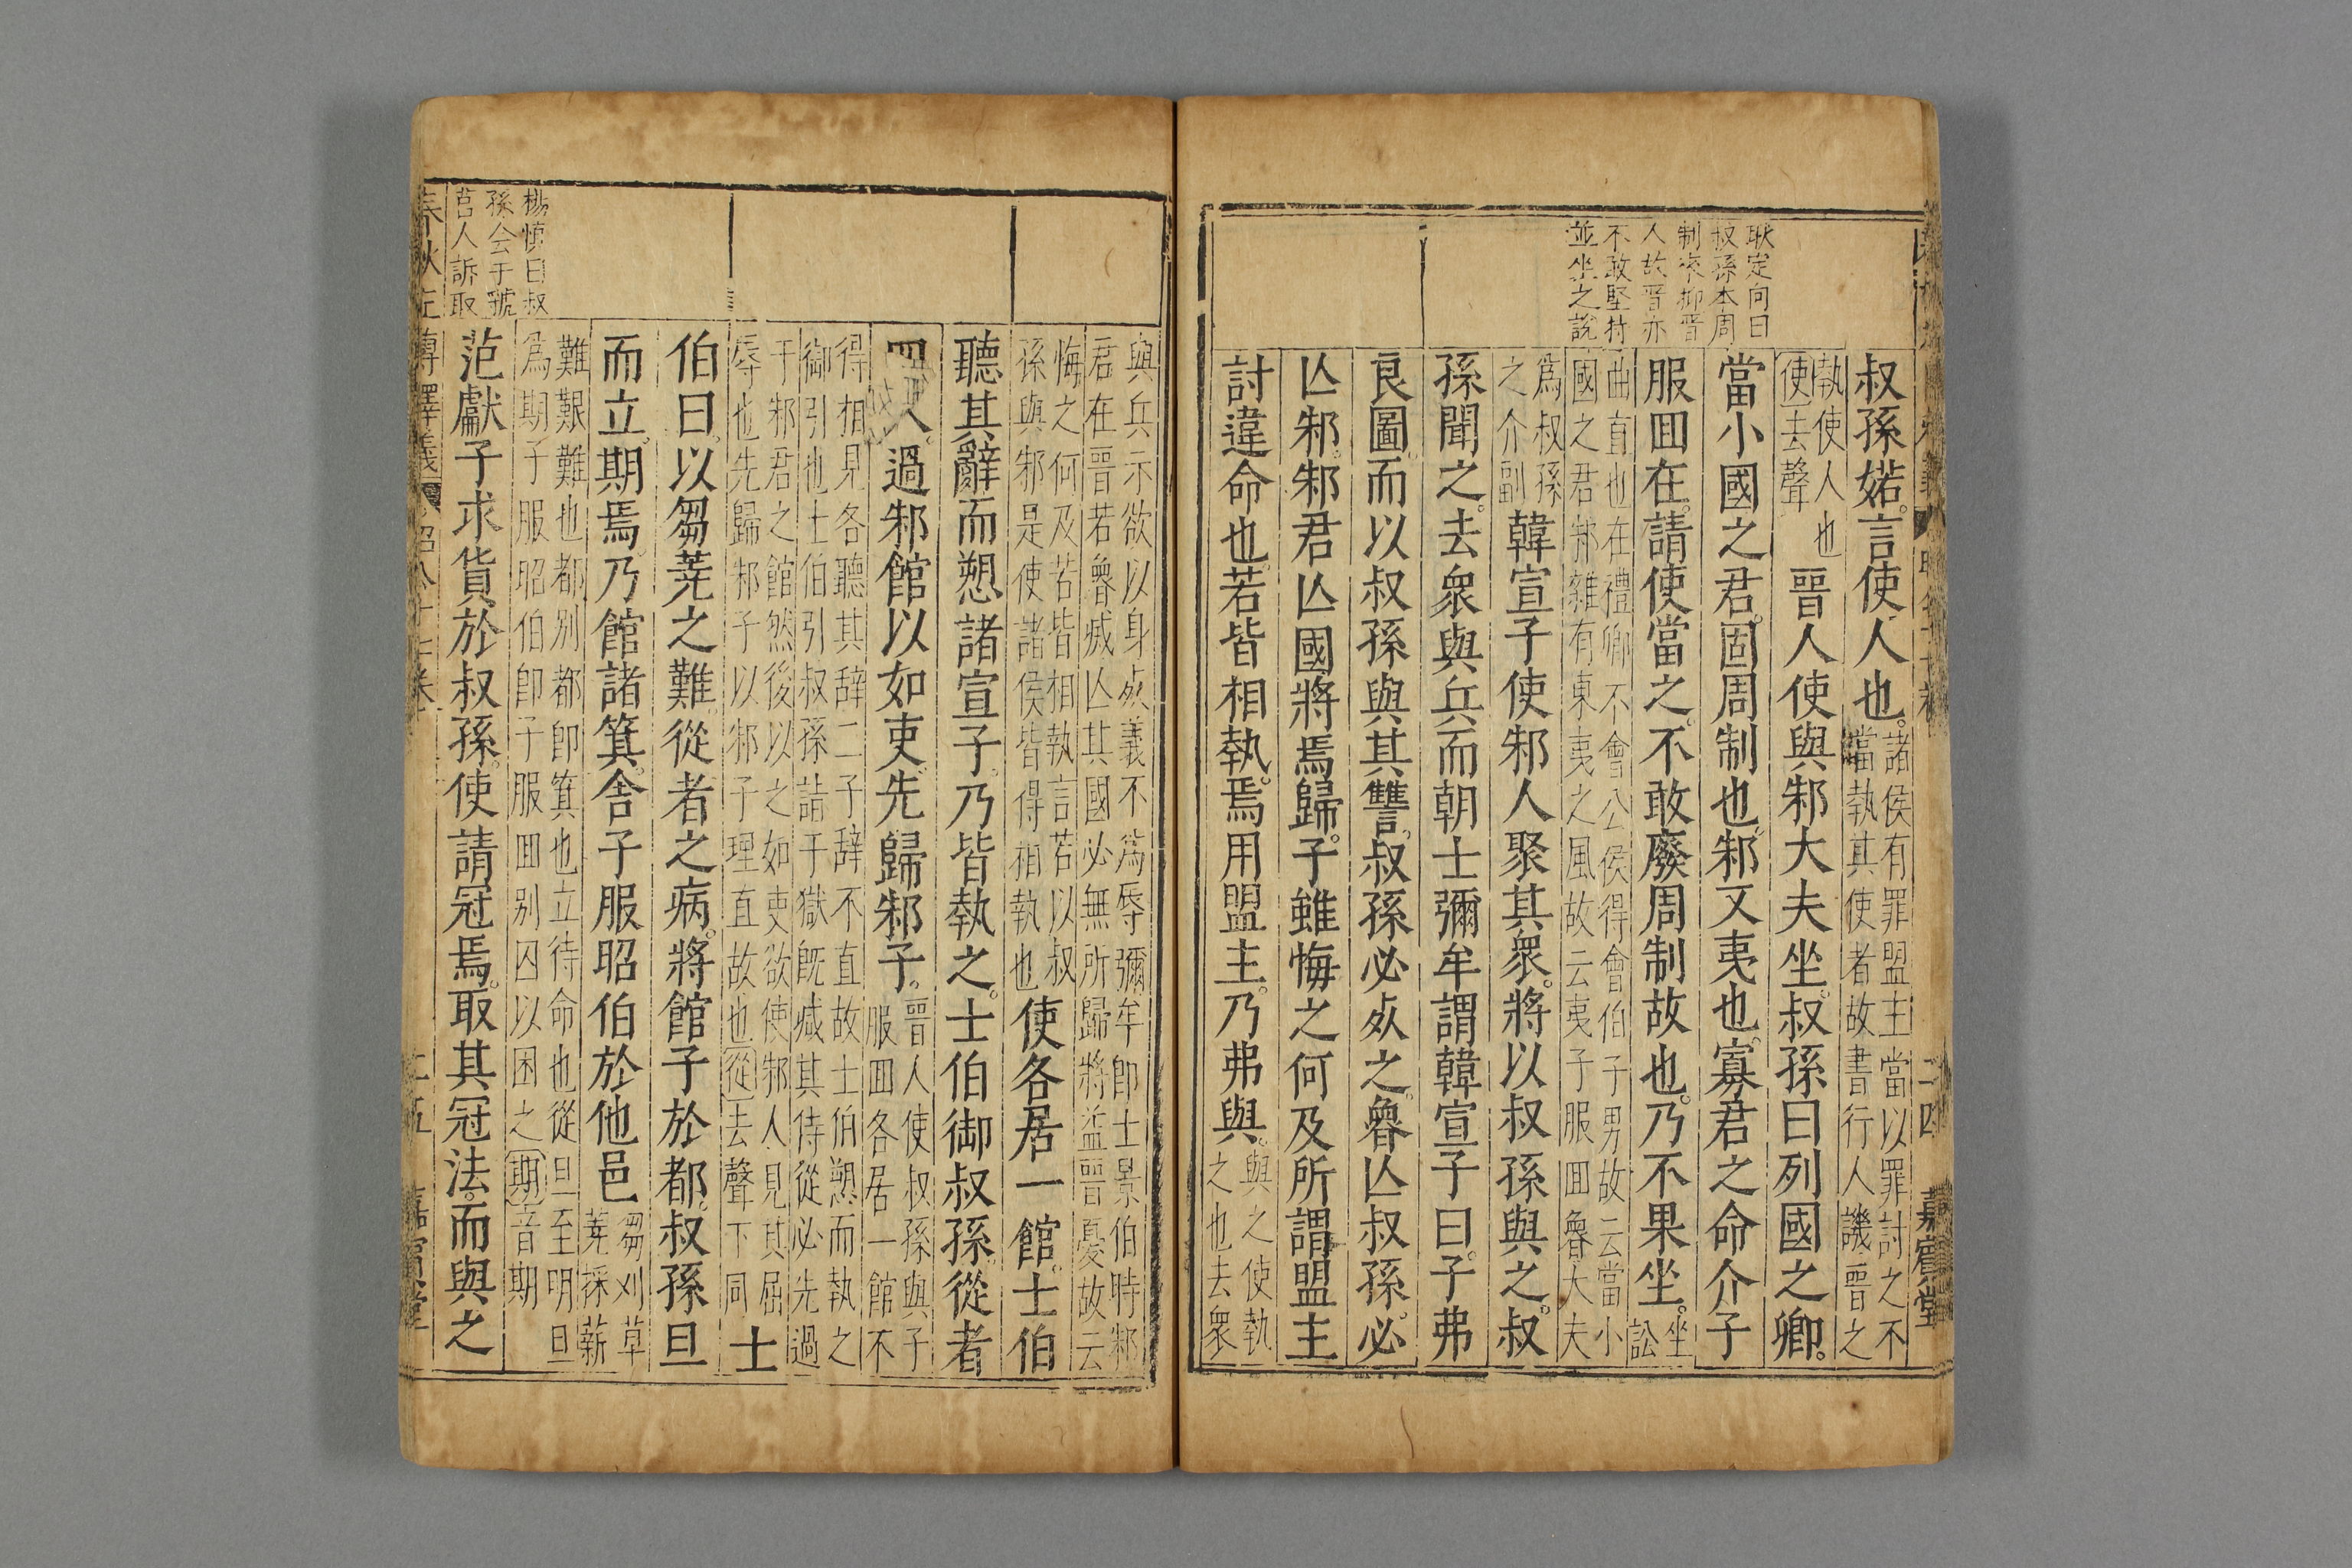 耿定向曰
叔孫本周
制來抑晋
人故晋亦
不敢堅持
並坐之說
叔孫婼。言使人也。諸侯有罪盟主當以罪討之不
當執其使者故書行人譏晋之
執使人也
使去聲
晋人使與邾大夫坐。叔孫曰列國之卿。
當小國之君。固周制也。邾又夷也。寡君之命介子
服囬在。請使當之。不敢廢周制故也。乃不果坐。坐
訟
曲直也在禮卿不會公侯得會伯子男故云當小
國之君邾雜有東夷之風故云夷子服囬魯大夫
為叔孫
之介副
韓宣子使邾人聚其衆。將以叔孫與之。叔
孫聞之。去衆與兵而朝士彌牟謂韓宣子曰。子弗
良圖。而以叔孫與其讐。叔孫必𣦸之。魯亾叔孫。必
亾邾。邾君亾國將焉歸。子雖悔之何及所謂盟主
討違命也。若皆相執。焉用盟主。乃弗與。與之使執
之也去衆
二四 嘉賓堂
與兵示欲以身𣦸義不為辱彌牟即士景伯時邾
君在晋若魯滅亾其國必無所歸將益晋憂故云
悔之何及若皆相執言若以叔
孫與邾是使諸侯皆得相執也
使各居一館。士伯
聽其辭而愬諸宣子。乃皆執之。士伯御叔孫。從者
四人。過邾館以如吏。先歸邾子。晋人使叔孫與子
服囬各居一館不
得相見各聽其辞二子辞不直故士伯愬而執之
御引也士伯引叔孫詣于獄既減其侍從必先過
于邾君之館然後以之如吏欲使邾人見其屈
辱也先歸邾子以邾子理直故也從去聲下同
士
伯曰。以芻蕘之難從者之病。將館子於都。叔孫旦
而立。期焉。乃館諸箕。舍子服昭伯於他邑芻刈草
蕘採薪
難艱難也都別都即箕也立待命也從旦至明旦
為期子服昭伯即子服囬別囚以困之期音期
范獻子求貨於叔孫。使請冠焉。取其冠法。而與之
楊慎曰叔
孫会于虢
莒人訴取